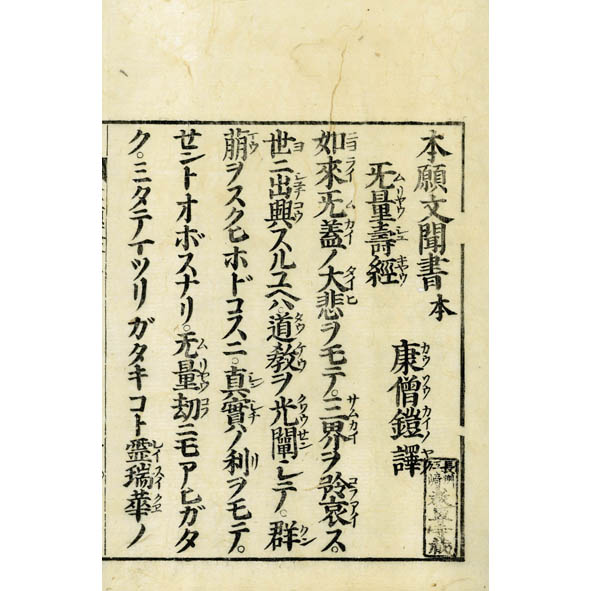 本願文聞書 本
无量壽經 康僧鎧譯
如來无蓋ノ大悲ヲモテ。三界ヲ矜哀ス。
世ニ出興スルユヘハ道教ヲ光闡シテ。群
萠ヲスクヒホドコスニ。真實ノ利ヲモテ。
せントオボスナリ。无量劫ニモアヒガタ
ク。ミタテマツリガタキコト靈瑞華ノ